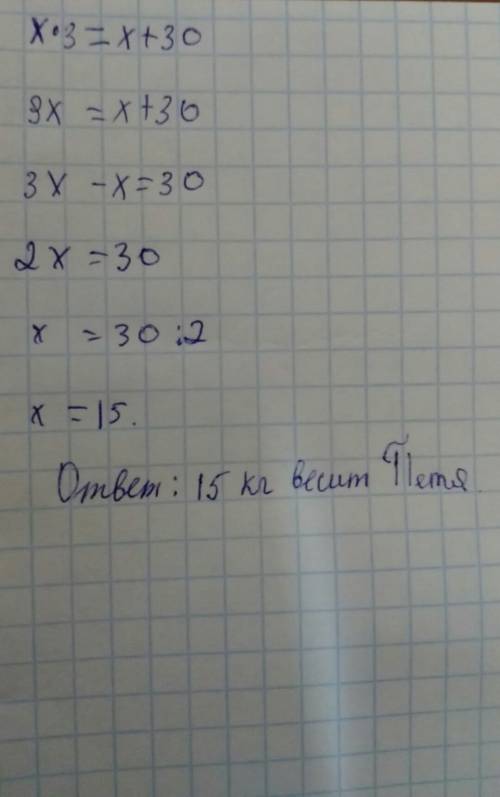 x·3=x+30
3x =x+30
3x -x=30
2x =30
x =30:2
x =15.
Ответ: 15 кг весит Петя.